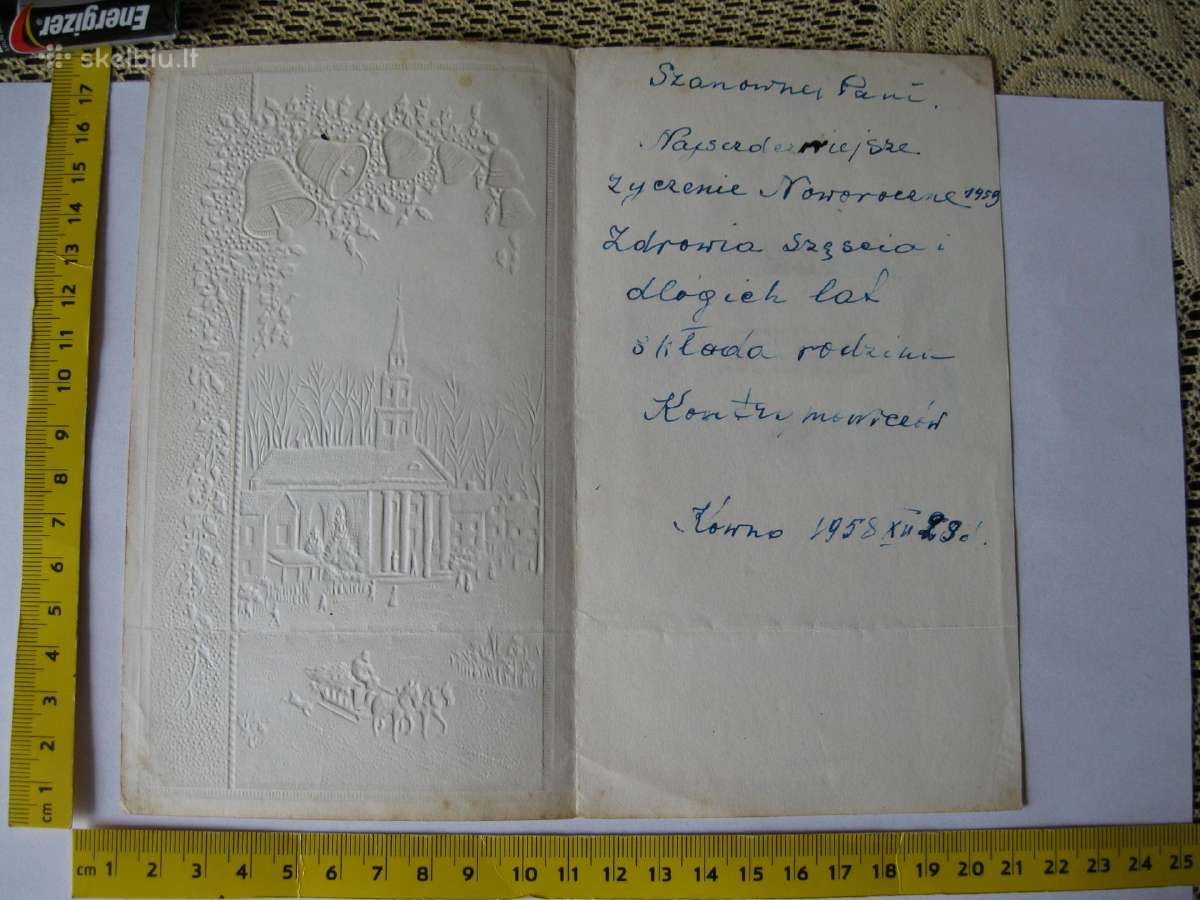 Energizer
skelbiu.lt
Szanownej Pani.
Najserdeczniejsze
życzenie Noworoczne 1959
Zdrowia Szęscia i
dlógich lat
skłoda rodzina
Kontrymowiczów
Kówno 1958 XII 23 d.
17
16
15
14
13
12
11
10
9
8
7
6
5
4
3
2
1
cm
cm 1 2 3 4 5 6 7 8 9 10 11 12 13 14 15 16 17 18 19 20 21 22 23 24 25